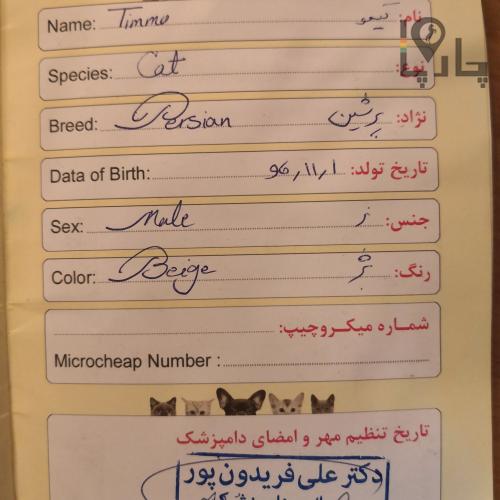 Name: Timmo تیمو نام:
چارپا
Species: Cat نوع:
Breed: Persian پرشین نژاد:
Data of Birth: ۹۶٫۱۱٫۱ تاریخ تولد:
Sex: Male نر جنس:
Color: Beige بژ رنگ:
شماره میکروچیپ:
Microcheap Number :
تاریخ تنظیم مهر و امضای دامپزشک
دکتر علی فریدون پور